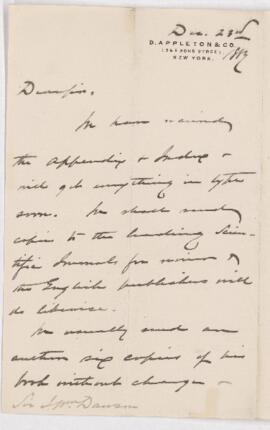 Dec. 23rd
D. APPLETON & CO.
1, 3 & 5 BOND STREET
NEW YORK.
1887
Dear Sir,
We have received
the Appendix & Index &
will get everything in type
soon. We shall send
copies to the leading Scien-
tific Journals for review &
the English publishers will
do likewise.
We usually send an
author six copies of his
book without charge &
Sir J Wm Dawson